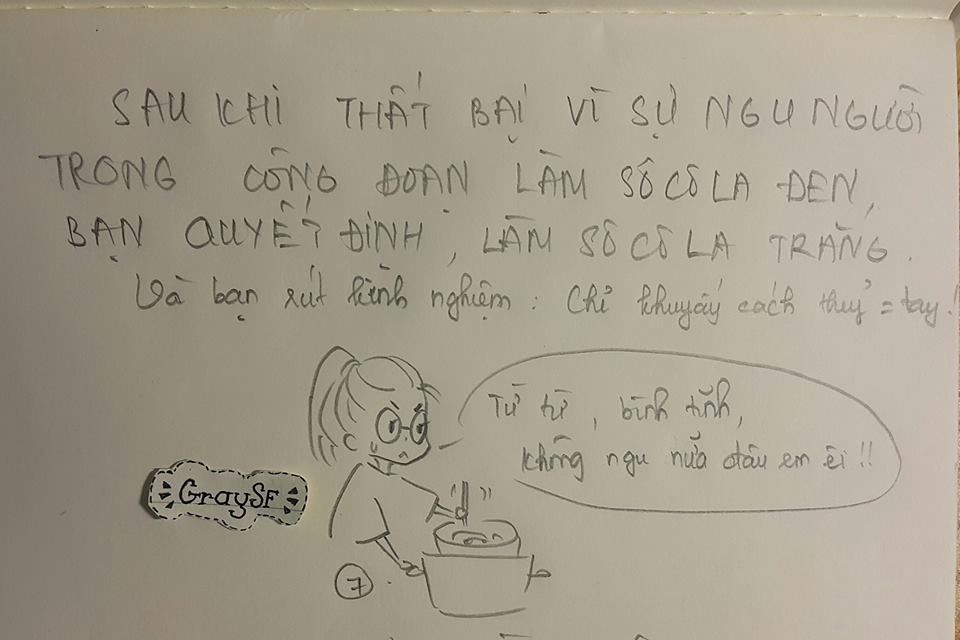 SAU KHI THẤT BẠI VÌ SỰ NGU NGƯỜI
TRONG CÔNG ĐOẠN LÀM SÔ CÔ LA ĐEN,
BẠN QUYẾT ĐỊNH, LÀM SÔ CÔ LA TRẮNG.
Và bạn rút kinh nghiệm: Chỉ khuyấy cách thuỷ = tay!
Từ từ, bình tĩnh,
không ngu nữa đâu em êi!!
GraySF
7